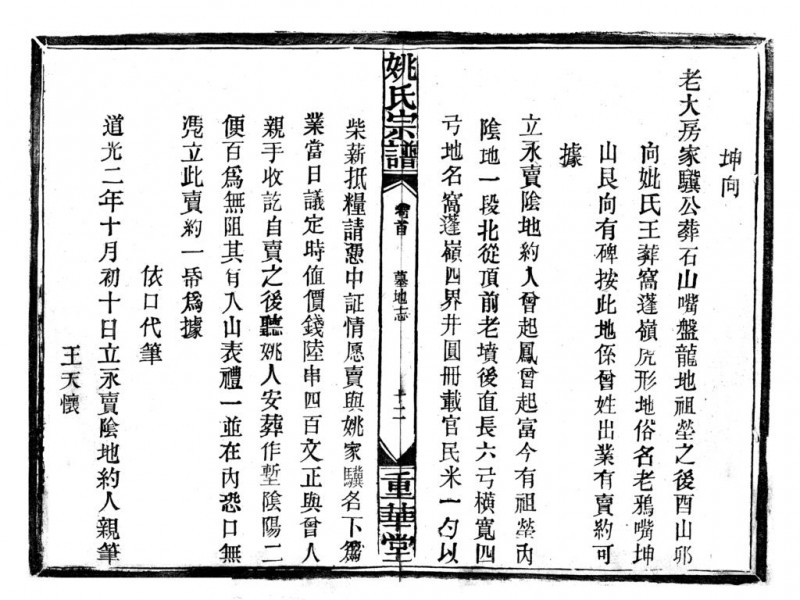 坤向
老大房家驥公葬石山嘴盤龍地祖塋之後酉山卯
向妣氏王葬窩蓬嶺虎形地俗名老鴉嘴坤
山艮向有碑按此地係曾姓出業有賣約可
據
立永賣陰地約人曾起鳳曾起富今有祖塋內
陰地一段北從頂前老墳後直長六弓橫寬四
弓地名窩蓬嶺四界井圓冊載官民米一勺以
姚氏宗譜
卷首
墓地志
十二
重華堂
柴薪抵糧請憑中証情愿賣與姚家驥名下爲
業當日議定時值價錢陸串四百文正與曾人
親手收訖自賣之後聽姚人安葬作塹陰陽二
便百爲無阻其有入山表禮一並在內恐口無
凴立此賣約一昏爲據
依口代筆
道光二年十月初十日立永賣陰地約人親筆
王天懷